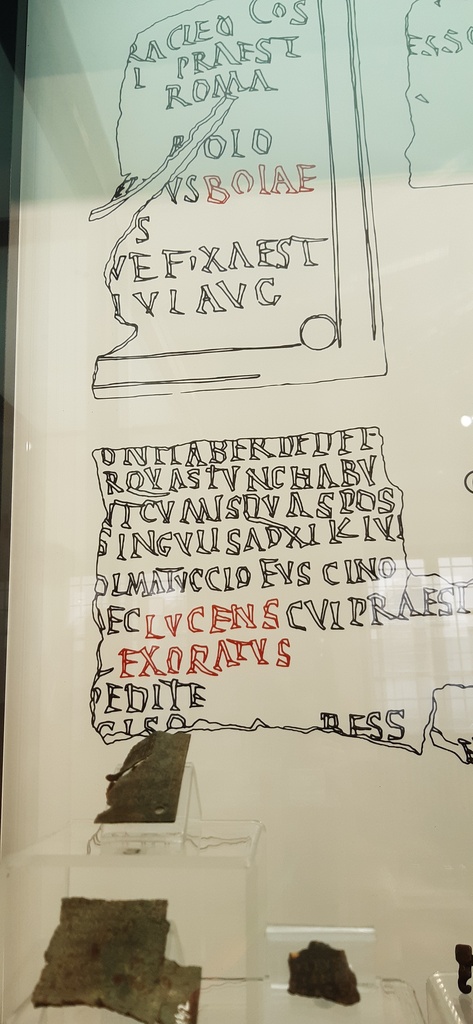 COS
RACLEO
I PRAEST
ROMA
BOIO
VS BOIAE
S
VE FIXA EST
IVL AVG
ESSO
ONTIABERDEDEF
ROVASTVNCHABV
ITCVMISQVASPOS
SINGVLISADXIKIVL
OLMATVCCIOEVSCINO
EC LVCENS CVI PRAEST
EXORATVS
EDITE
DESS